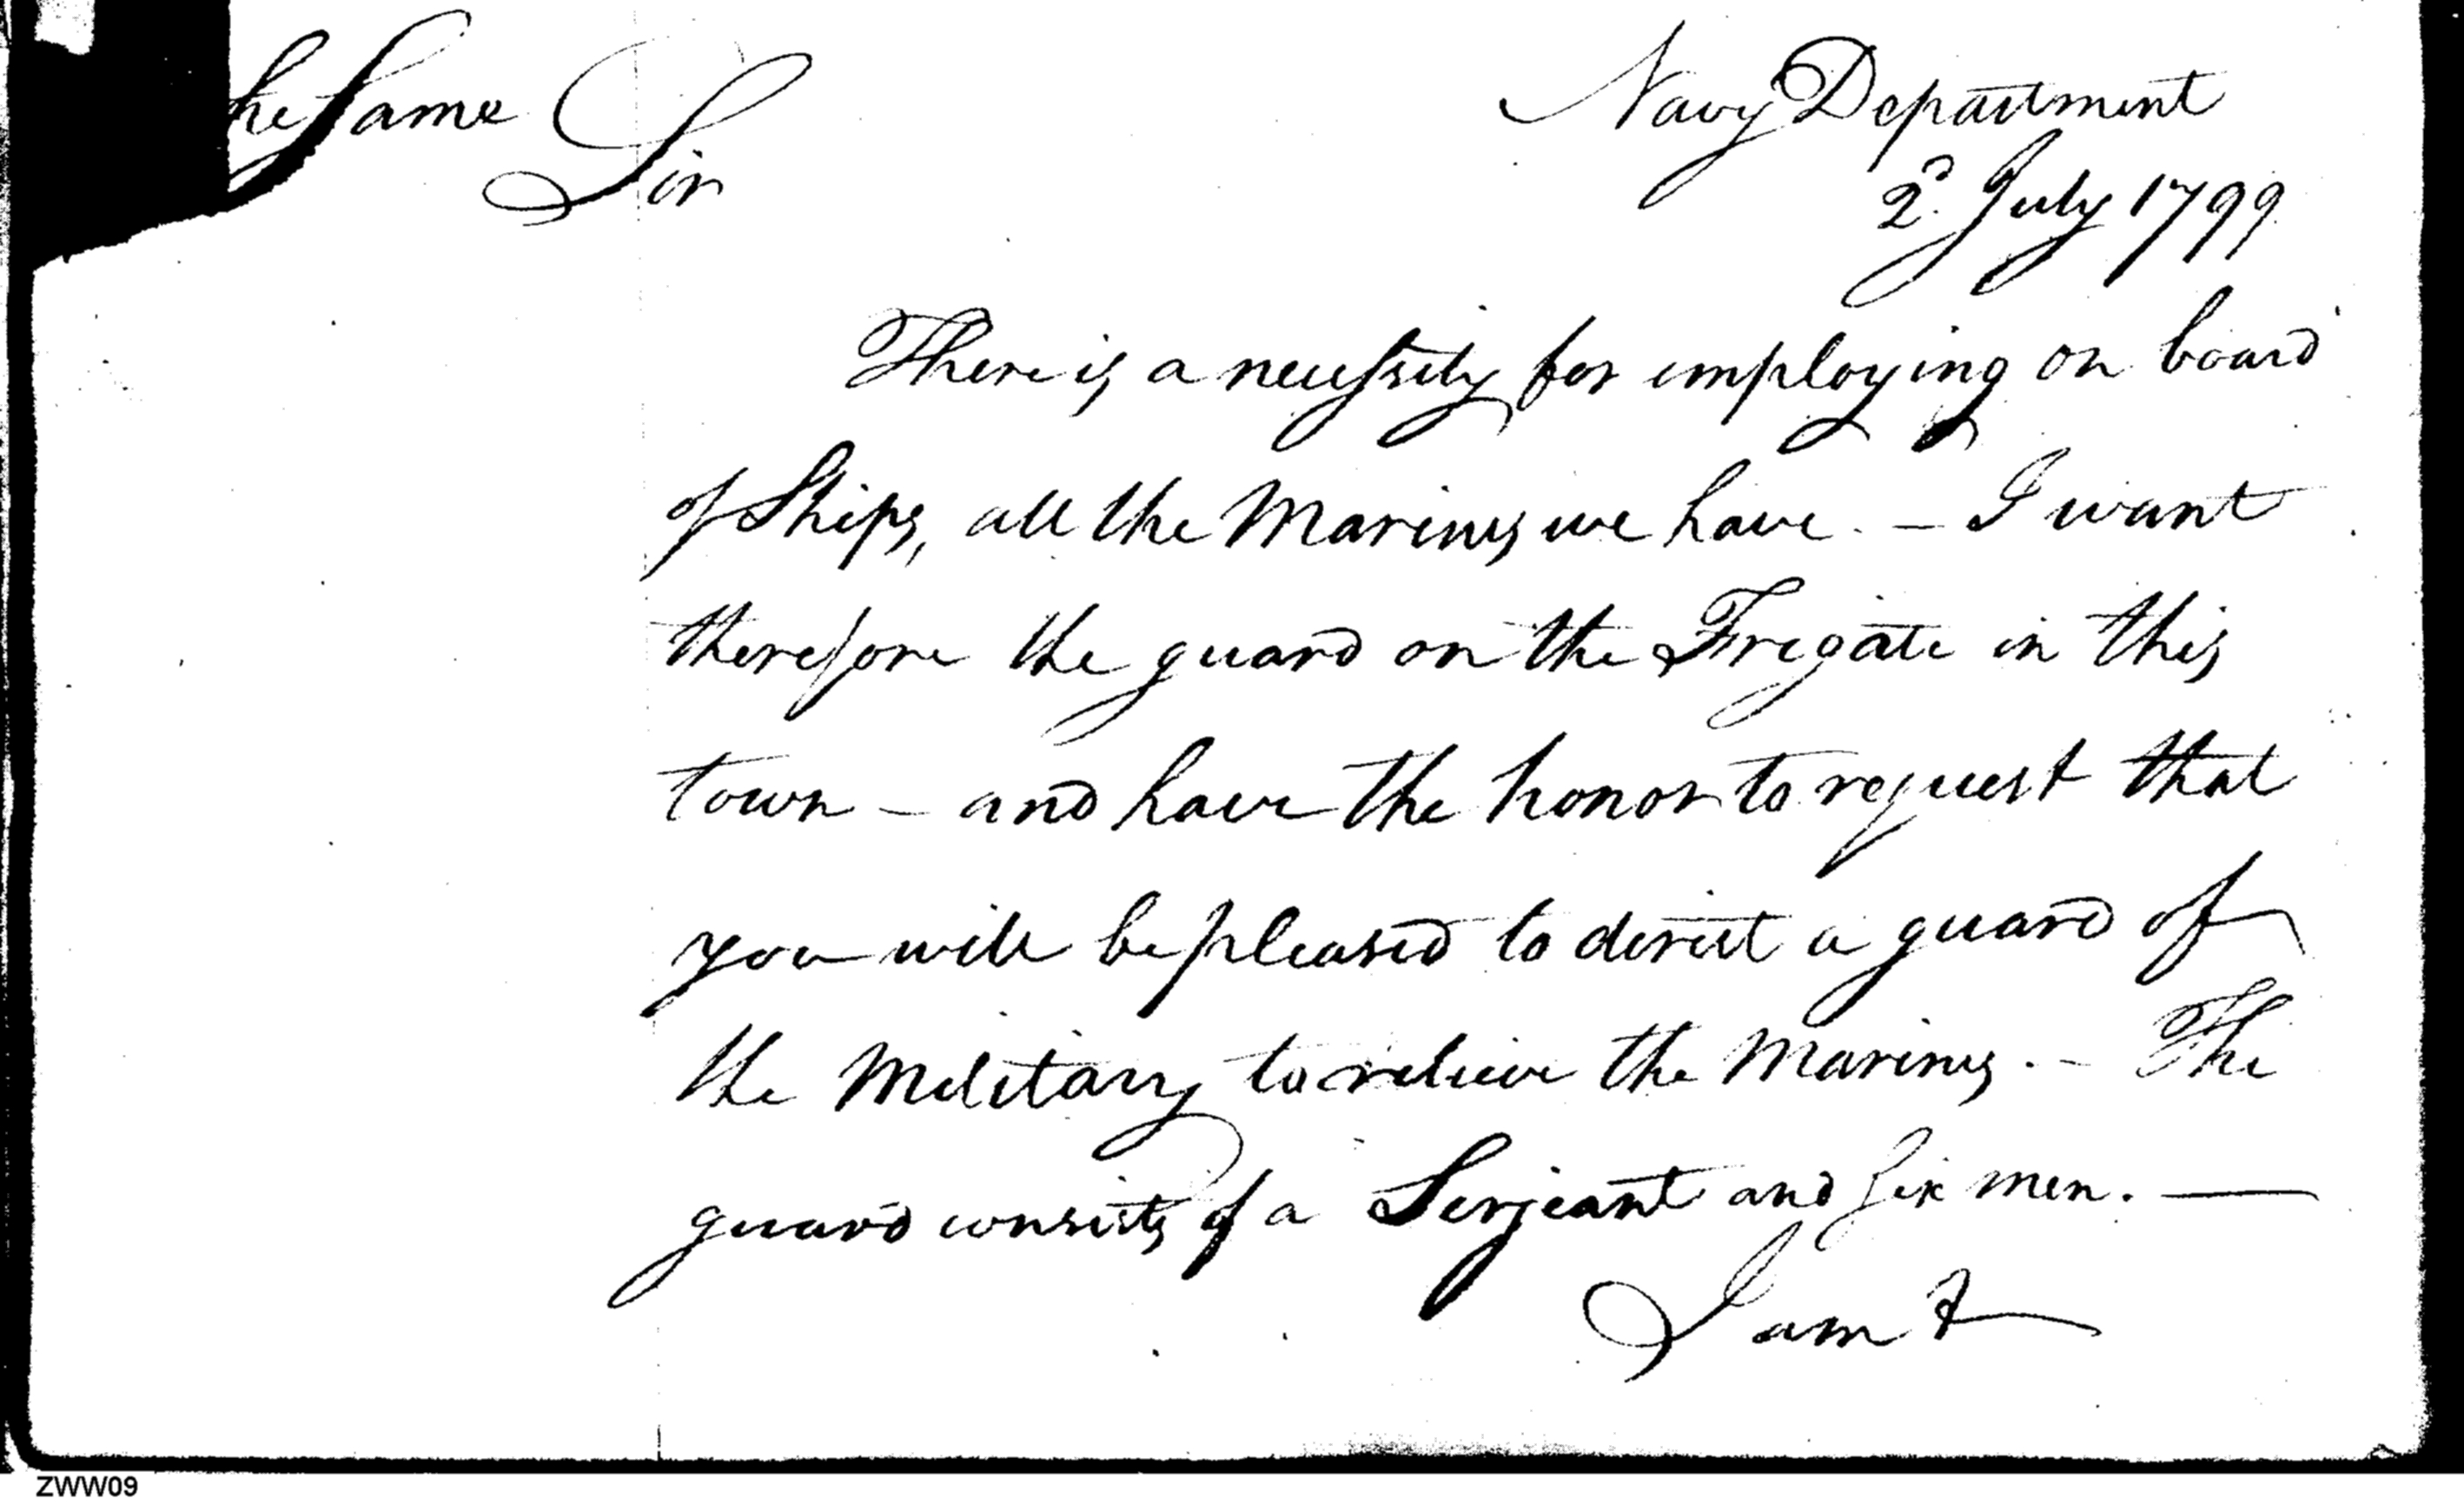 he Same
Navy Department
Sir
2d. July 1799
There is a necessity for employing on board
of Ships, all the Marines we have. — I want
therefore the guard on the Frigate in this
town — and have the honor to request that
you will be pleased to direct a guard of
the Military to relieve the Marines. — The
guard consists of a Serjeant and six men. —
I am &
ZWW09